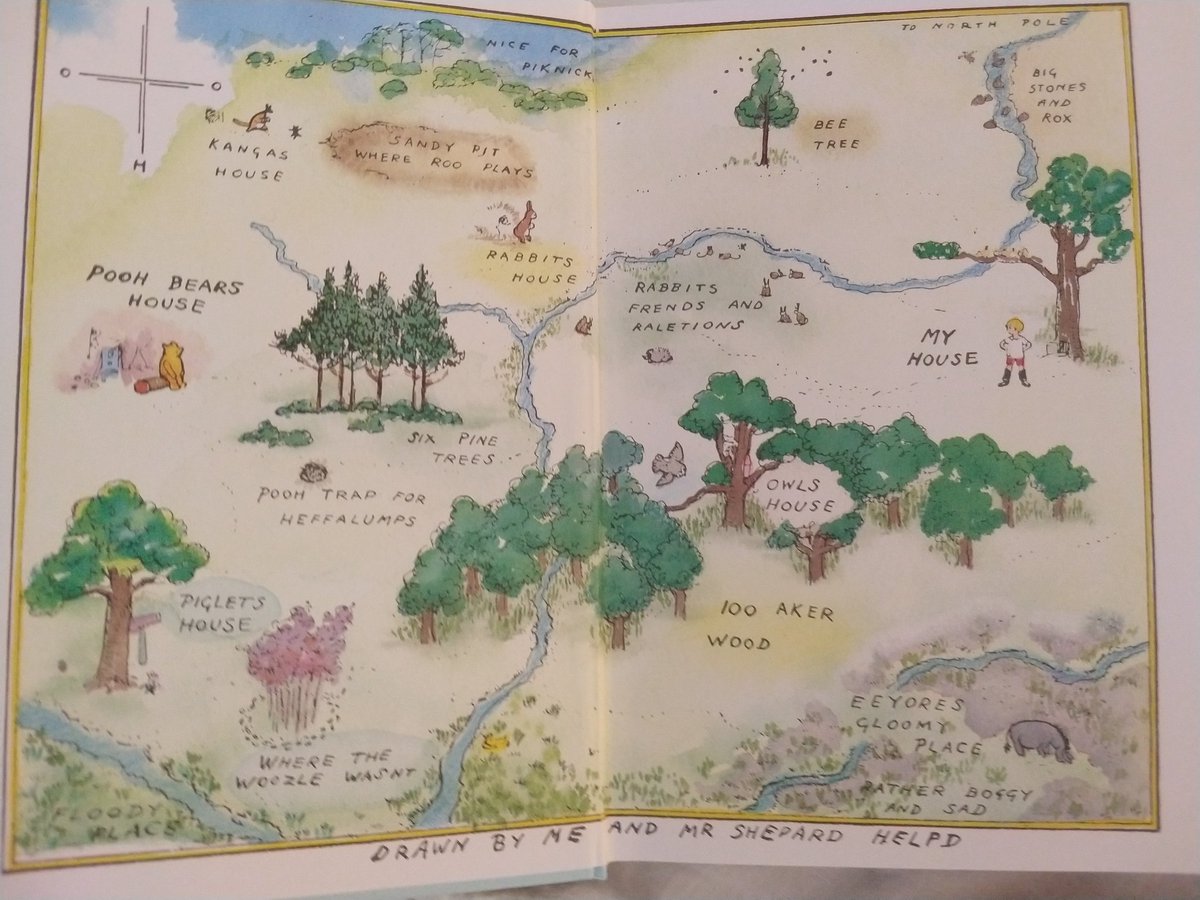 NICE FOR
PIKNICK
TO NORTH POLE
BIG
STONES
AND
ROX
BEE
TREE
O
O
H
KANGAS
HOUSE
SANDY PIT
WHERE ROO PLAYS
RABBITS
HOUSE
POOH BEARS
HOUSE
RABBITS
FRENDS AND
RALETIONS
MY
HOUSE
SIX PINE
TREES
POOH TRAP FOR
HEFFALUMPS
OWLS
HOUSE
PIGLETS
HOUSE
100 AKER
WOOD
WHERE THE
WOOZLE WASNT
EEYORES
GLOOMY
PLACE
RATHER BOGGY
AND SAD
FLOODY
PLACE
DRAWN BY ME AND MR SHEPARD HELPD